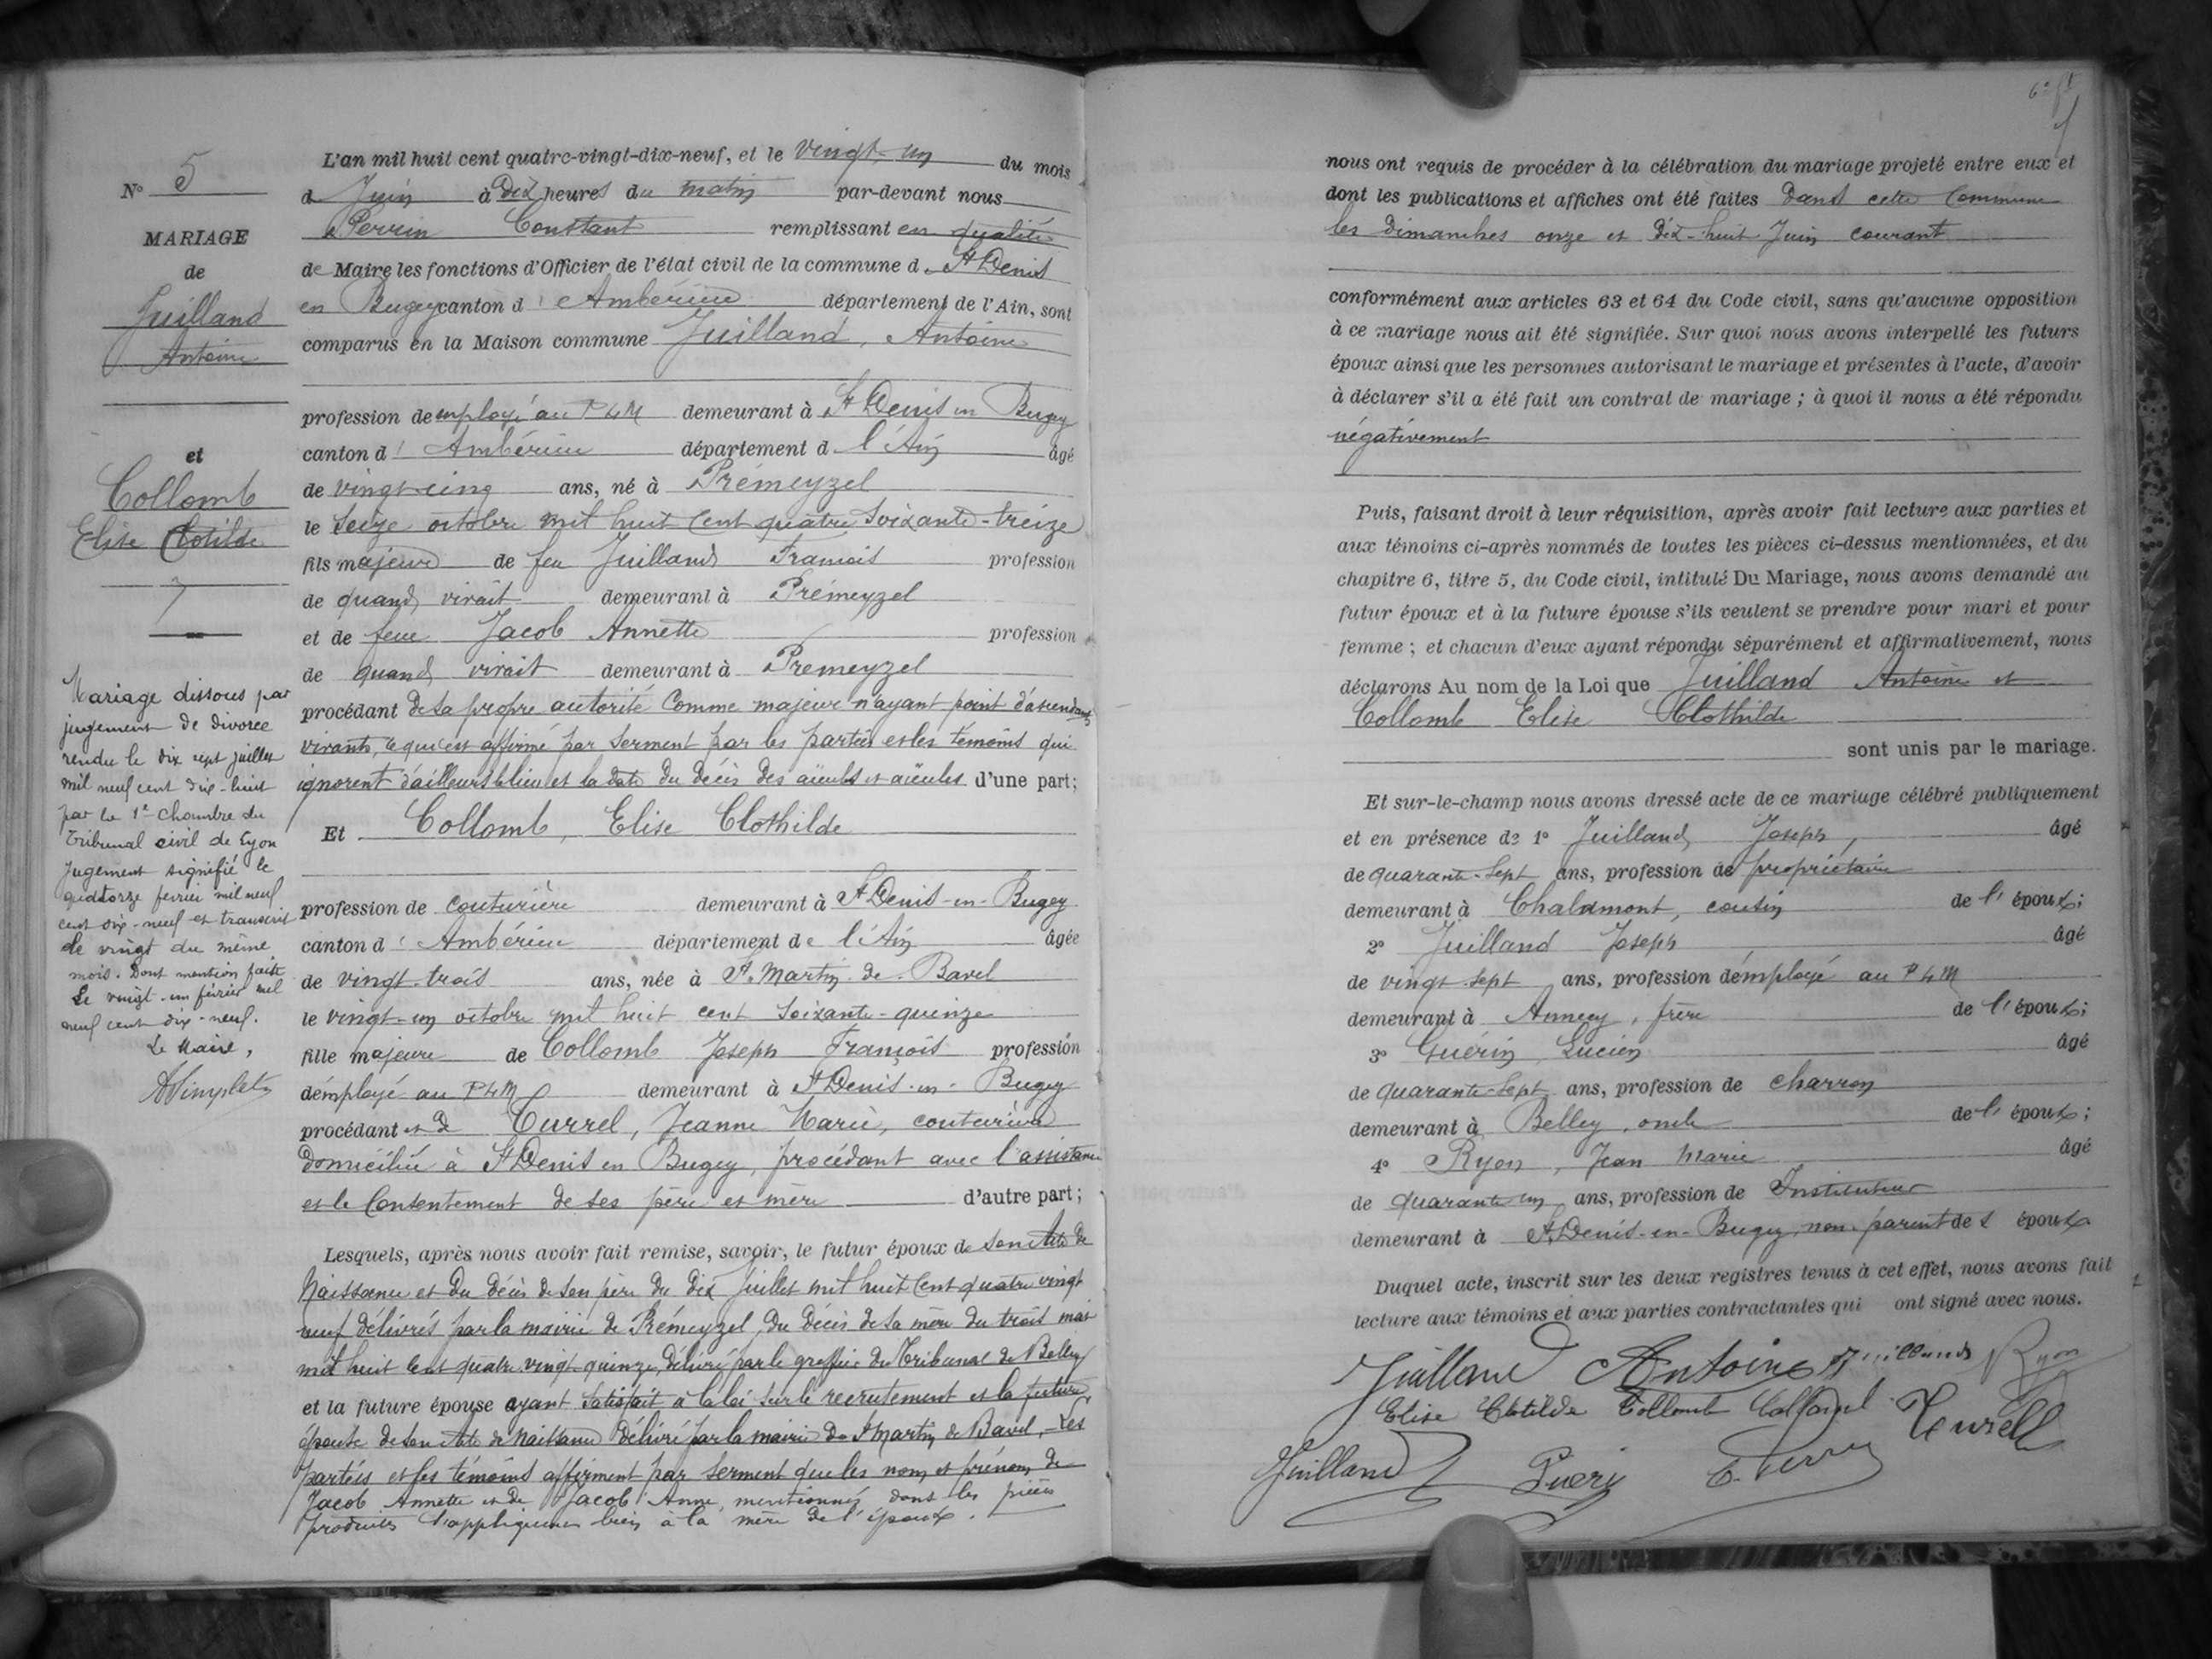 N° 5
MARIAGE
de
Juilland
Antoine
et
Collomb
Elise Clotilde
Mariage dissous par
jugement de divorce
rendu le dix sept juillet
mil neuf cent dix-huit
par la 1re chambre du
Tribunal civil de Lyon
Jugement signifié le
quatorze fevrier mil neuf
cent dix-neuf et transcrit
le vingt du même
mois. Dont mention faite
Le vingt-un février mil
neuf cent dix-neuf.
Le Maire,
L'an mil huit cent quatre-vingt-dix-neuf, et le vingt-un du mois
d Juin à Dix heures du matin par-devant nous
Perrin Constant remplissant en qualité
de Maire les fonctions d'Officier de l'état civil de la commune de St Denis
en Bugey canton d' Ambérieu département de l'Ain, sont
comparus en la Maison commune Juilland, Antoine
profession de employé au P L M demeurant à St Denis en Bugey
canton d' Ambérieu département de l'Ain âgé
de vingt-cinq ans, né à Prémeyzel
le seize octobre mil huit cent quatre soixante-treize
fils majeur de feu Juilland François profession
de quand vivait demeurant à Prémeyzel
et de feue Jacob Annette profession
de quand vivait demeurant à Premeyzel
procédant de sa propre autorité comme majeur n'ayant point d'ascendants
vivants, ce qui est affirmé par serment par les parties et les témoins qui
ignorent d'ailleurs le lieu et la date du décès des aïeuls et aïeules d'une part;
Et Collomb, Elise Clothilde
profession de couturière demeurant à St Denis-en-Bugey
canton d' Ambérieu département de l'Ain âgée
de vingt-trois ans, née à St Martin de Bavel
le vingt-un octobre mil huit cent soixante-quinze
fille majeure de Collomb Joseph François profession
d'employé au P L M demeurant à St Denis-en-Bugey
procédant et de Currel, Jeanne Marie, couturière
domiciliée à St Denis en Bugey, procédant avec l'assistance
et le Consentement de ses père et mère d'autre part;
Lesquels, après nous avoir fait remise, savoir, le futur époux de son Acte de
Naissance et du décès de son père du dix Juillet mil huit cent quatre vingt
neuf délivrés par la mairie de Prémeyzel, du décès de sa mère du trois mai
mil huit cent quatre vingt quinze, délivré par le greffier du Tribunal de Belley
et la future épouse ayant satisfait à la loi sur le recrutement et la future
épouse de son acte de naissance délivré par la mairie de St Martin de Bavel, Les
parties et les témoins affirment par serment que les nom et prénom de
Jacob Annette et de Jacob Anne, mentionnés dans les pièces
produites s'appliquent bien à la mère de l'époux.
nous ont requis de procéder à la célébration du mariage projeté entre eux et
dont les publications et affiches ont été faites dans cette Commune
les Dimanches onze et dix-huit Juin courant
conformément aux articles 63 et 64 du Code civil, sans qu'aucune opposition
à ce mariage nous ait été signifiée. Sur quoi nous avons interpellé les futurs
époux ainsi que les personnes autorisant le mariage et présentes à l'acte, d'avoir
à déclarer s'il a été fait un contrat de mariage; à quoi il nous a été répondu
négativement
Puis, faisant droit à leur réquisition, après avoir fait lecture aux parties et
aux témoins ci-après nommés de toutes les pièces ci-dessus mentionnées, et du
chapitre 6, titre 5, du Code civil, intitulé Du Mariage, nous avons demandé au
futur époux et à la future épouse s'ils veulent se prendre pour mari et pour
femme; et chacun d'eux ayant répondu séparément et affirmativement, nous
déclarons Au nom de la Loi que Juilland Antoine et
Collomb Elise Clothilde
sont unis par le mariage.
Et sur-le-champ nous avons dressé acte de ce mariage célébré publiquement
et en présence de 1° Juilland Joseph, âgé
de quarante-sept ans, profession de propriétaire
demeurant à Chalamont, cousin de l' époux;
2° Juilland Joseph âgé
de vingt-sept ans, profession d'employé au P L M
demeurant à Annecy, frère de l' époux;
3° Guérin Lucien âgé
de quarante-sept ans, profession de charron
demeurant à Belley, oncle de l' époux;
4° Ryon, Jean Marie âgé
de quarante-un ans, profession de Instituteur
demeurant à St Denis-en-Bugey, non parent des époux
Duquel acte, inscrit sur les deux registres tenus à cet effet, nous avons fait
lecture aux témoins et aux parties contractantes qui ont signé avec nous.
Juilland Antoine Juilland Ryon
Elise Clotilde Collomb
Juilland